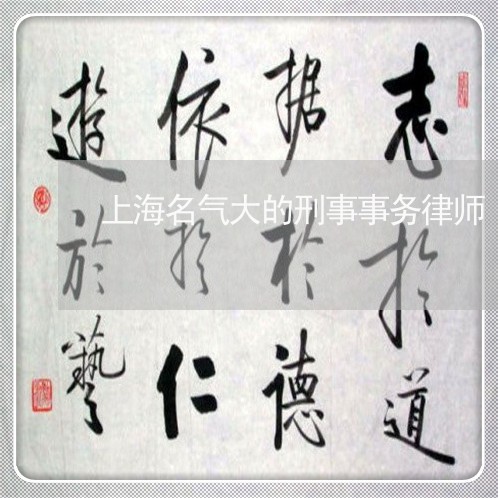 志於道
据於德
依於仁
遊於藝
上海名气大的刑事事务律师